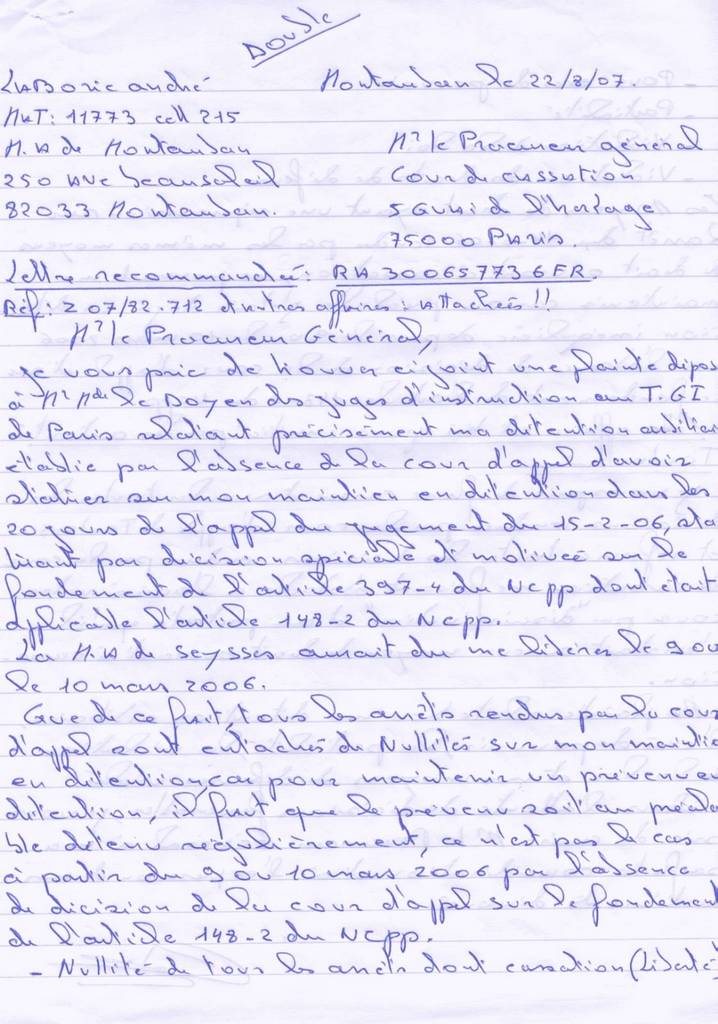 Double
LABorie andré Montauban le 22/8/07.
MAT: 11773 cell 215
M.A de Montauban Mr le Procureur général
250 AVC beausoleil Cour de cassation
82033 Montauban. 5 Quai de l'horloge
75000 PAris.
Lettre recommandée: RA 30065773 6 FR.
Réf: Z 07/82.712 et autres affaires: attachées !!
Mr le Procureur Général,
Je vous prie de trouver ci joint une plainte dépos
à Mr le Doyen des juges d'instruction au T.GI
de Paris relatant précisément ma détention arbitrai
établie par l'absence de la cour d'appel d'avoir
statuer sur mon maintien en détention dans les
20 jours de l'appel du jugement du 15-2-06, sta
tuant par décizion spéciale et motivée sur le
fondement de l'article 397-4 du Ncpp dont était
applicable l'article 148-2 du Ncpp.
La M.A de Seysses aurait du me libérer le 9 ou
le 10 mars 2006.
Que de ce fait, tous les arrêts rendus par la cour
d'appel sont entachés de Nullités sur mon maintie
en détention, car pour maintenir un prévenu en
détention, il faut que le prévenu soit au préala
ble détenu régulièrement, ce n'est pas le cas
à partir du 9 ou 10 mars 2006 par l'absence
de décizion de la cour d'appel sur le fondement
de l'article 148-2 du Ncpp.
- Nullité de tous les arrêts dont cassation (Liberté